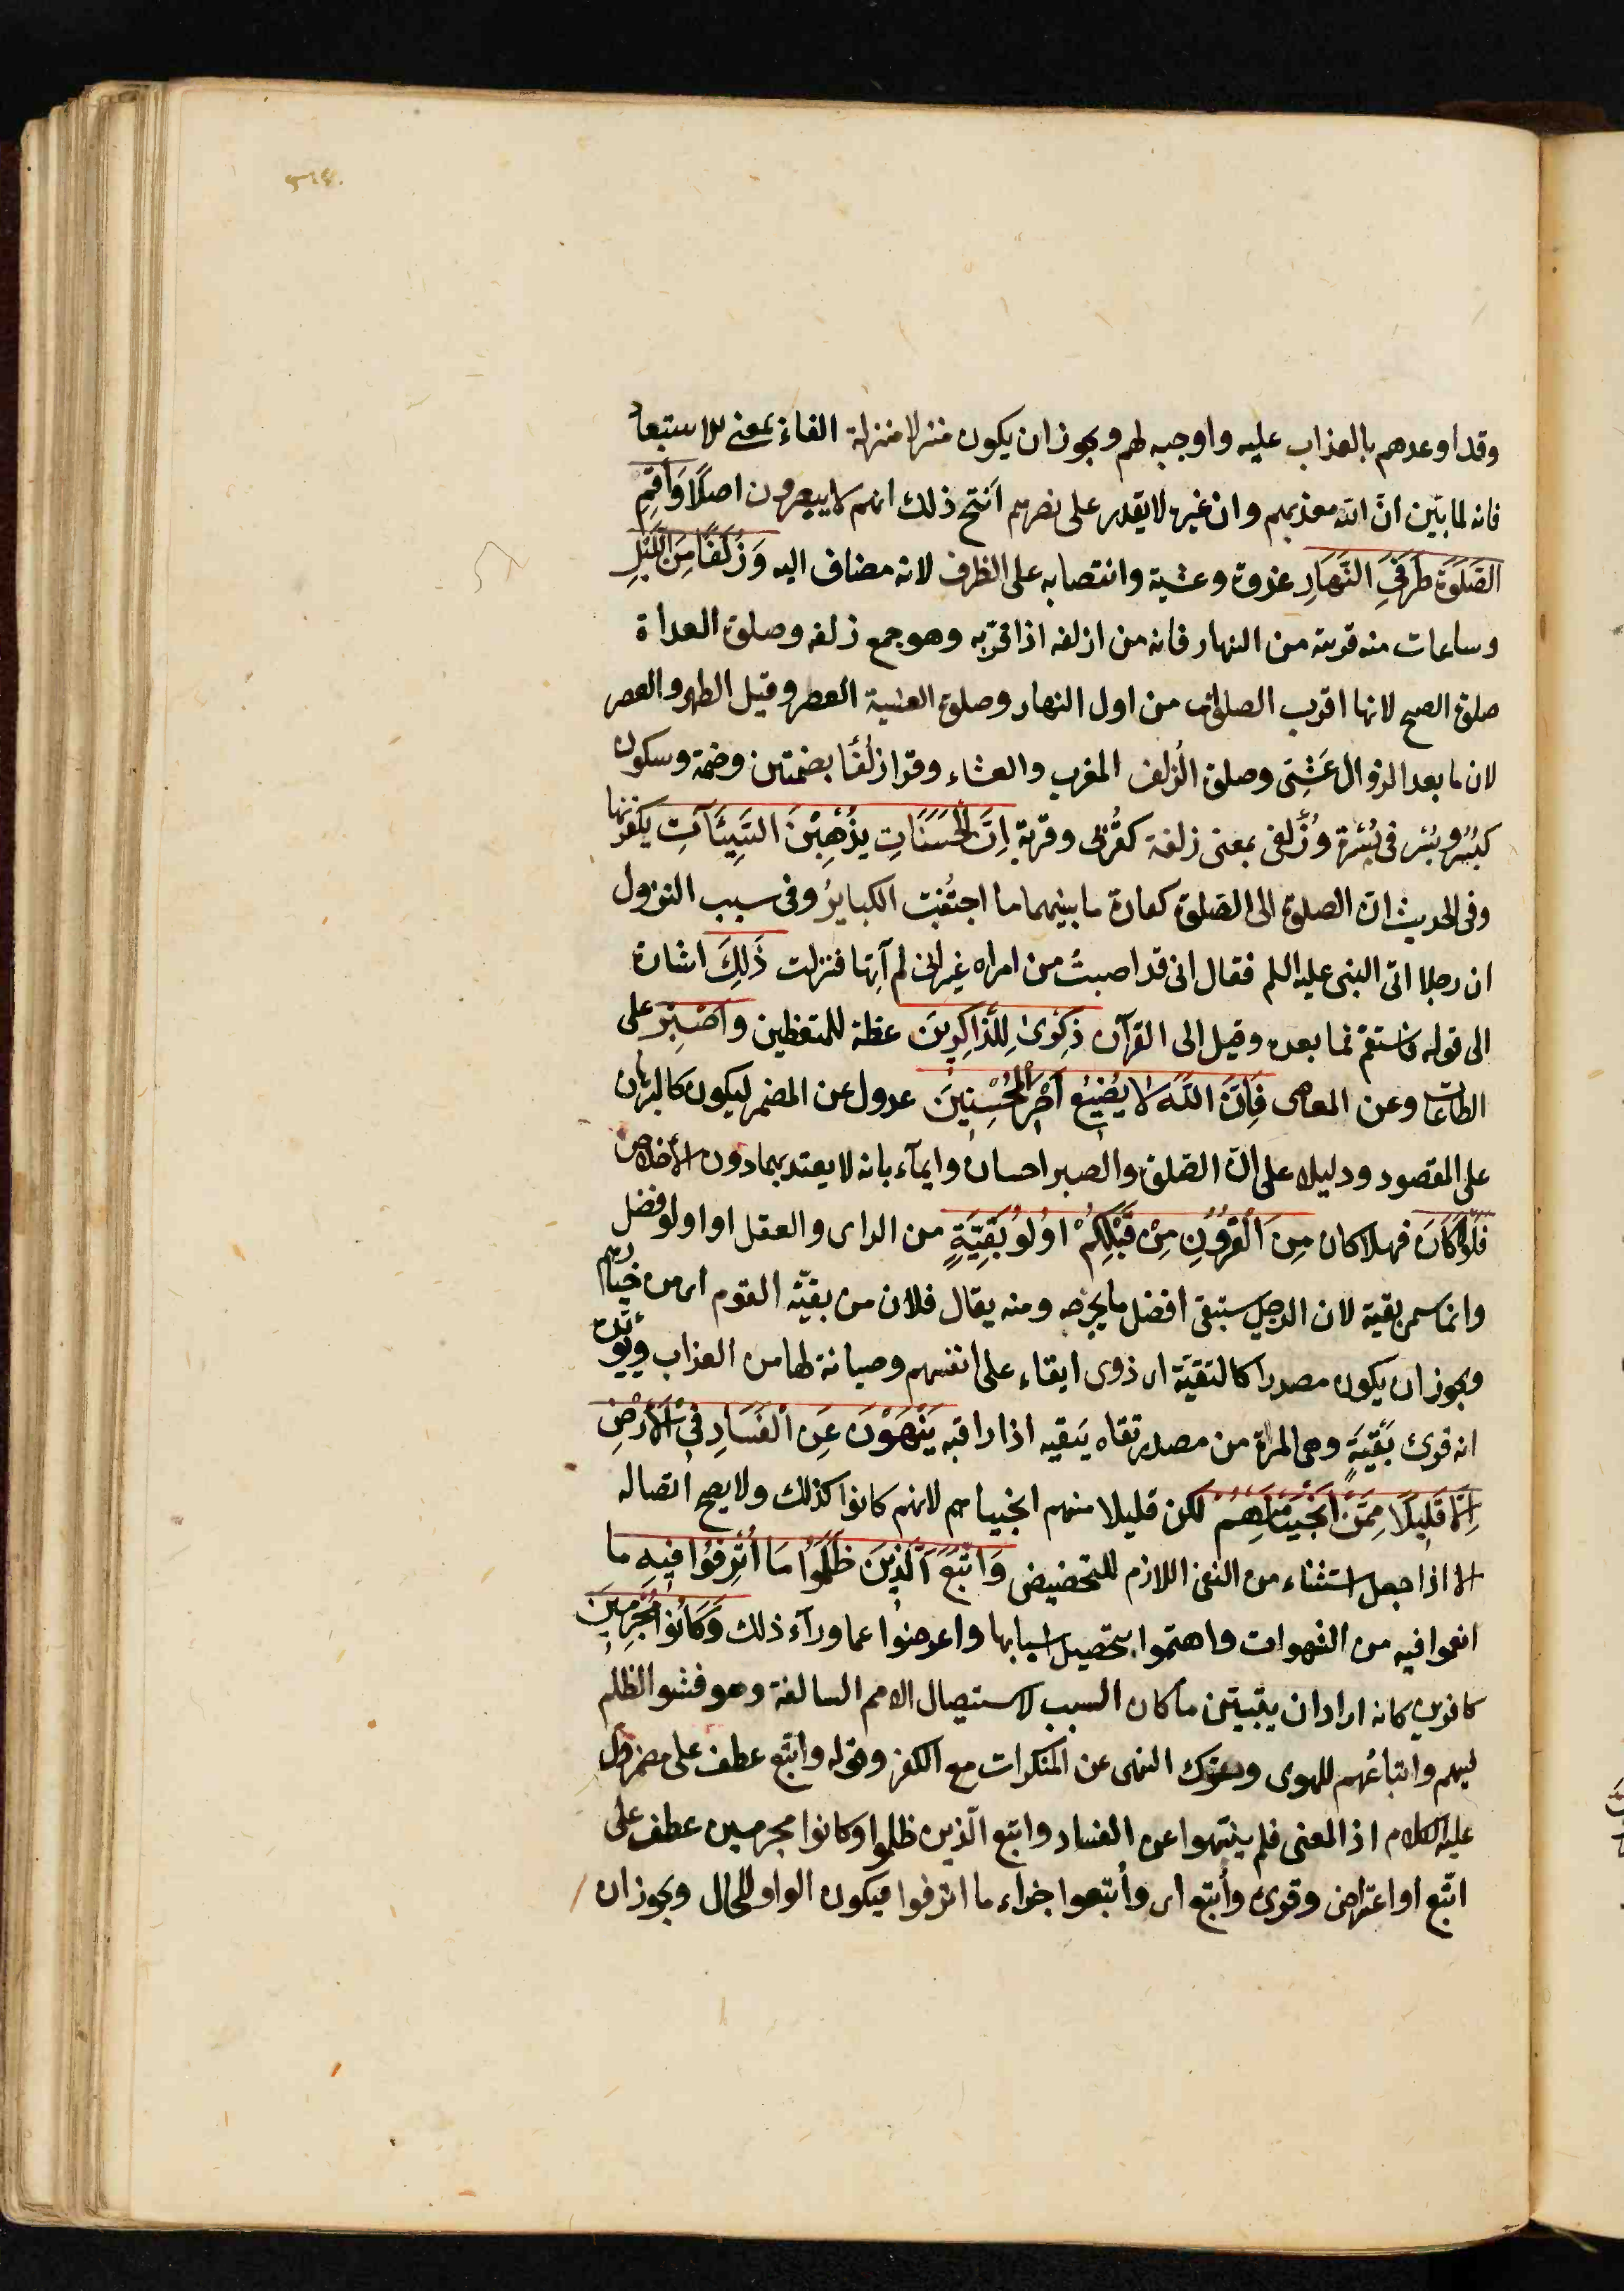 وقد اوعدهم بالعذاب عليه واوجبه لهم ويجوز ان يكون منزلا منزلة الفاء بمعنى الاستبعاد
فانه لما بيّن انّ الله معذبهم وان غيره لا يقدر على نصرهم انتج ذلك انهم لا ينصرون اصلًا وَاَقِمِ
الصَّلٰوةَ طَرَفَيِ النَّهَارِ غدوة وعشية وانتصابه على الظرف لانه مضاف اليه وَزُلَفًا مِنَ اللَّيْلِ
وساعات منه قريبة من النهار فانه من ازلفه اذا قرّبه وهو جمع زلفه وصلوة الغداة
صلوة الصبح لانها اقرب الصلوات من اول النهار وصلوة العشية العصر وقيل الظهر والعصر
لان ما بعد الزوال عَشِىّ وصلوة الزُلف المغرب والعشاء وقرا زُلُفًا بضمتين وضمة وسكون
كبُسُر وبُسْر في بُسْرة وزُلفى بمعنى زلفة كقُربى وقربة اِنَّ الْحَسَنَاتِ يُذْهِبْنَ السَّيِّئَاتِ يكفرنها
وفي الحديث انّ الصلوة الى الصلوة كفارة ما بينهما ما اجتُنبت الكبايرُ وفي سبب النزول
ان رجلا اتى النبي عليه السلم فقال انى قد اصبتُ من امراه غير انى لم آتِها فنزلت ذٰلِكَ اشارة
الى قوله فاستقم فما بعده وقيل الى القرآن ذِكْرٰى لِلذَّاكِرِينَ عظة للمتعظين وَاصْبِرْ على
الطاعات وعن المعاصى فَاِنَّ اللّٰهَ لَا يُضِيعُ اَجْرَ الْمُحْسِنِينَ عدول عن المضمر ليكون كالبرهان
على المقصود ودليلا على انّ الصلوة والصبر احسان وايمآء بانه لا يعتد بهما دون الاخلاص
فَلَوْلَا كَانَ فهلا كان مِنَ الْقُرُونِ مِنْ قَبْلِكُمْ اُولُو بَقِيَّةٍ من الراى والعقل او اولو فضل
وانما سمى بقية لان الرجل يستبقى افضل ما يخرجه ومنه يقال فلان من بقيّة القوم اى من خيارهم
ويجوز ان يكون مصدرا كالتقيّة اى ذوى ابقاء على انفسهم وصيانة لها من العذاب ويؤيده
انه قرئ بَقْيَةٍ وهى المرة من مصدر بقاه يَبقيه اذا راقبه يَنْهَوْنَ عَنِ الْفَسَادِ فِي الْاَرْضِ
اِلَّا قَلِيلًا مِمَّنْ اَنْجَيْنَا مِنْهُمْ لكن قليلا منهم انجيناهم لانهم كانوا كذلك ولا يصح اتصاله
الا اذا جعل استثناء من النفى اللازم للتحضيض وَاتَّبَعَ الَّذِينَ ظَلَمُوا مَا اُتْرِفُوا فِيهِ ما
انعموا فيه من الشهوات واهتموا بتحصيل اسبابها واعرضوا عما ورآء ذلك وَكَانُوا مُجْرِمِينَ
كافرين كانه اراد ان يتبيّن ما كان السبب لاستيصال الامم السالفة وهو فشو الظلم
فيهم واتباعُهم للهوى وترك النهى عن المنكرات مع الكفر وقوله واتّبع عطف على مضمر دل
عليه الكلام اذ المعنى فلم ينتهوا عن الفساد واتبع الّذين ظلموا وكانوا مجرمين عطف على
اتّبع او اعتراض وقرئ وأُتبع اى وأُتبعوا جزاء ما اترفوا فيكون الواو للحال ويجوز ان